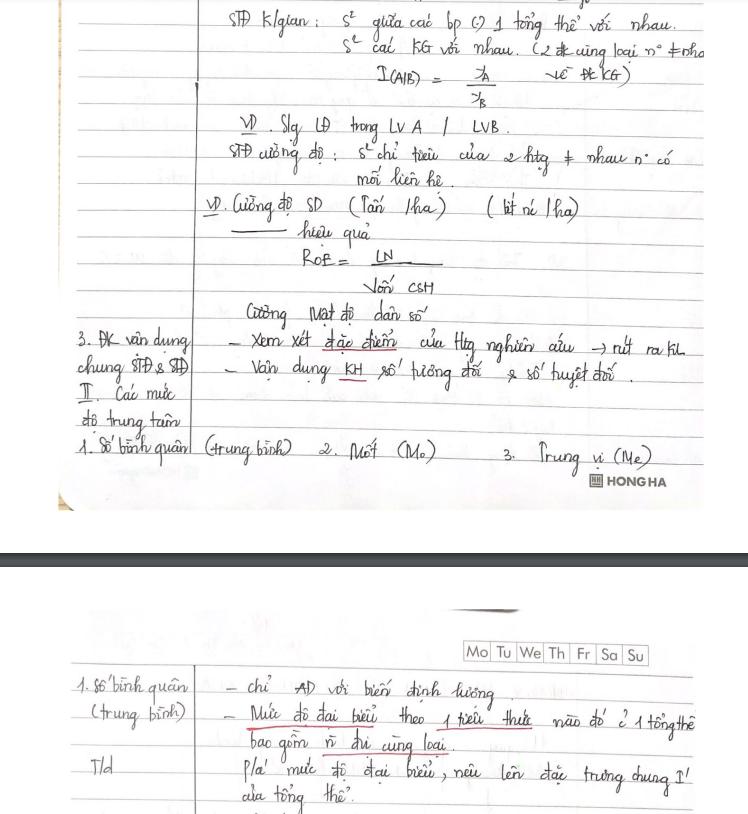 STĐ K/gian : s² giữa các bp (-) 1 tổng thể với nhau.
s² các KG với nhau. (2 đk cùng loại n° ≠ nha
I(A/B) = yA / yB về ĐK KG)
VD. Slg LĐ trong LV A / LVB.
STĐ cường độ : s² chỉ tiêu của 2 htg ≠ nhau n° có
mối liên hệ.
VD. Cường độ SD (Tấn /ha) /ha)
hiệu quả
ROE = LN
Vốn CSH
Cường Mật độ dân số
3. ĐK vận dụng - Xem xét đặc điểm của Htg nghiên cứu → rút ra KL
chung STĐ & STĐ - Vận dụng KH số tương đối & số tuyệt đối.
II. Các mức
độ trung tâm
1. Số bình quân (trung bình) 2. Mốt (Mo) 3. Trung vị (Me)
HONG HA
Mo Tu We Th Fr Sa Su
1. Số bình quân - chỉ AD với biến định lượng
(trung bình) - Mức độ đại biểu theo 1 tiêu thức nào đó ở 1 tổng thể
bao gồm n đvi cùng loại.
T/d P/á mức độ đại biểu, nêu lên đặc trưng chung I'
của tổng thể.